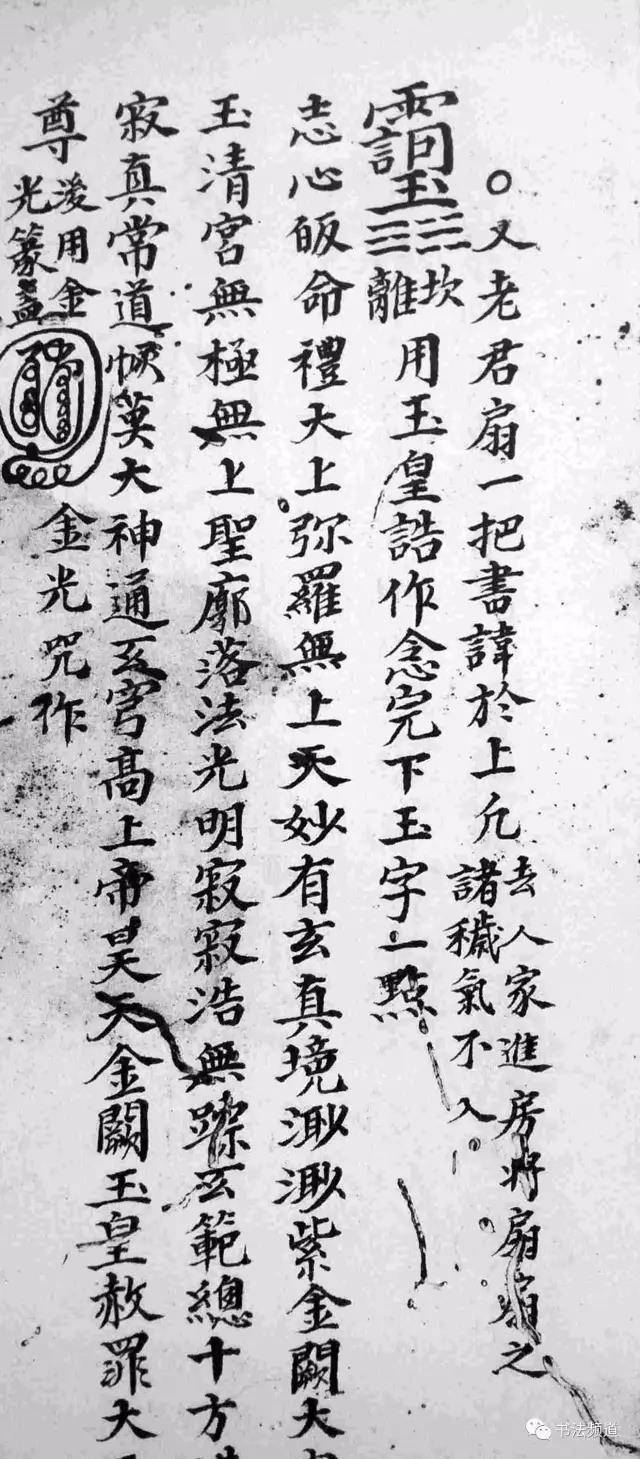 ○又老君扇一把書諱於上凢去人家進房将扇扇之
諸穢氣不入
坎
離用玉皇誥作念完下玉字一點
志心皈命禮天上弥羅無上天妙有玄真境渺渺紫金闕太
玉清宮無極無上聖廓落法光明寂寂浩無蹤玄範總十方
寂真常道恢漠大神通玄穹高上帝昊天金闕玉皇赦罪大天
尊後用金
光篆盖
金光咒作
书法频道